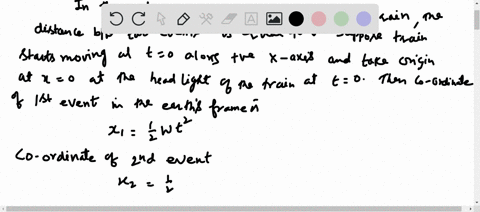 In the
rain, the
distance b/n
Suppose train
starts moving at t=0 along +ve x-axis and take origin
at x=0 at the head light of the train at t=0. Then Co-ordinate
of 1st event in the earth's frame
x₁ = ½ wt²
Co-ordinate of 2nd event
x₂ = ½